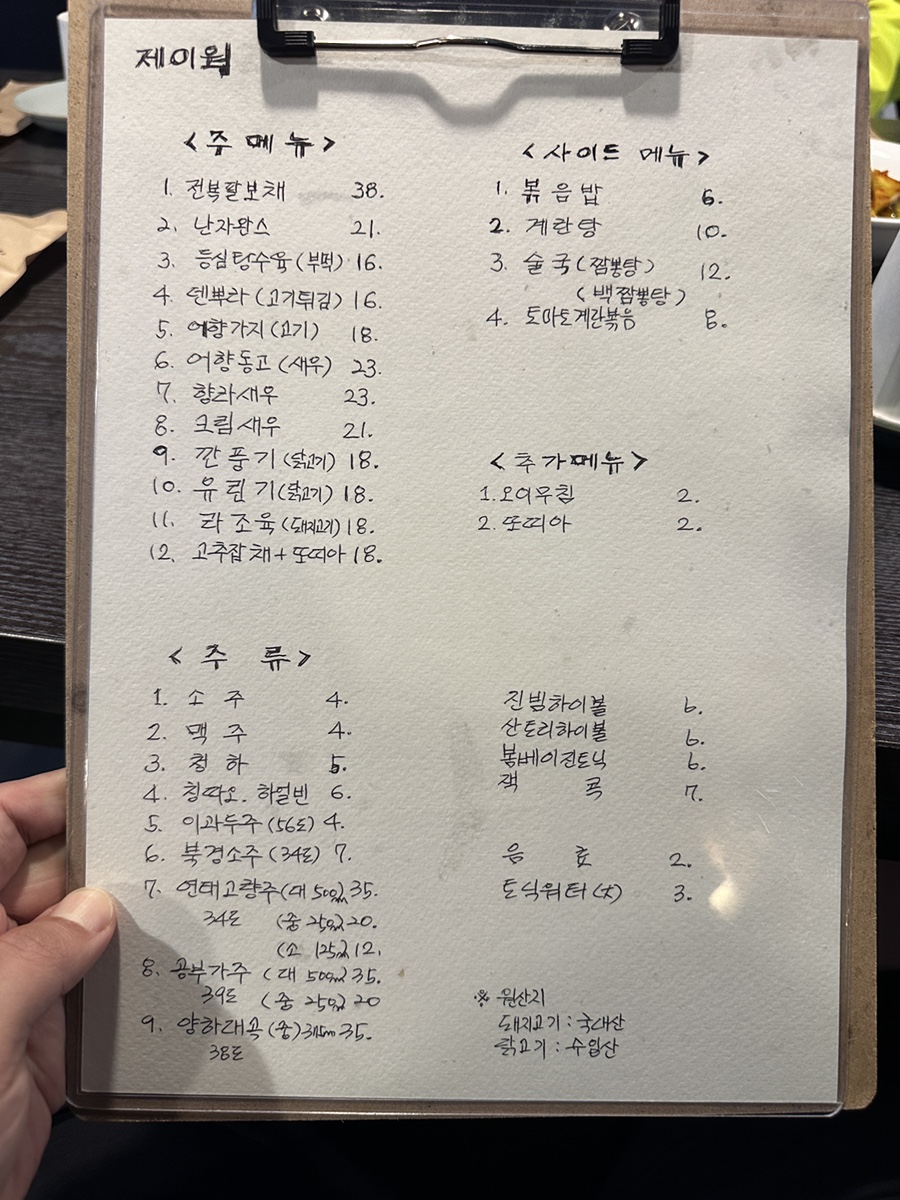 제이웍
< 주 메 뉴 >
1. 전복팔보채 38.
2. 난자완스 21.
3. 등심탕수육 (부먹) 16.
4. 덴뿌라 (고기튀김) 16.
5. 어향가지 (고기) 18.
6. 어향동고 (새우) 23.
7. 향라새우 23.
8. 크림새우 21.
9. 깐풍기 (닭고기) 18.
10. 유린기 (닭고기) 18.
11. 라조육 (돼지고기) 18.
12. 고추잡채 + 또띠아 18.
< 사이드 메뉴 >
1. 볶음밥 6.
2. 계란탕 10.
3. 술국 (짬뽕탕) 12.
(백짬뽕탕)
4. 토마토계란볶음 8.
< 추가메뉴 >
1. 오이무침 2.
2. 또띠아 2.
< 주 류 >
1. 소 주 4.
2. 맥 주 4.
3. 청 하 5.
4. 칭따오. 하얼빈 6.
5. 이과두주 (56도) 4.
6. 북경소주 (34도) 7.
7. 연태고량주 (대 500ml) 35.
34도 (중 250ml) 20.
(소 125ml) 12.
8. 공부가주 (대 500ml) 35.
39도 (중 250ml) 20
9. 양하대곡 (중) 375ml 35.
38도
진빔하이볼 6.
산토리하이볼 6.
봄베이진토닉 6.
잭 콕 7.
음 료 2.
토닉워터 (大) 3.
※ 원산지
돼지고기 : 국내산
닭고기 : 수입산